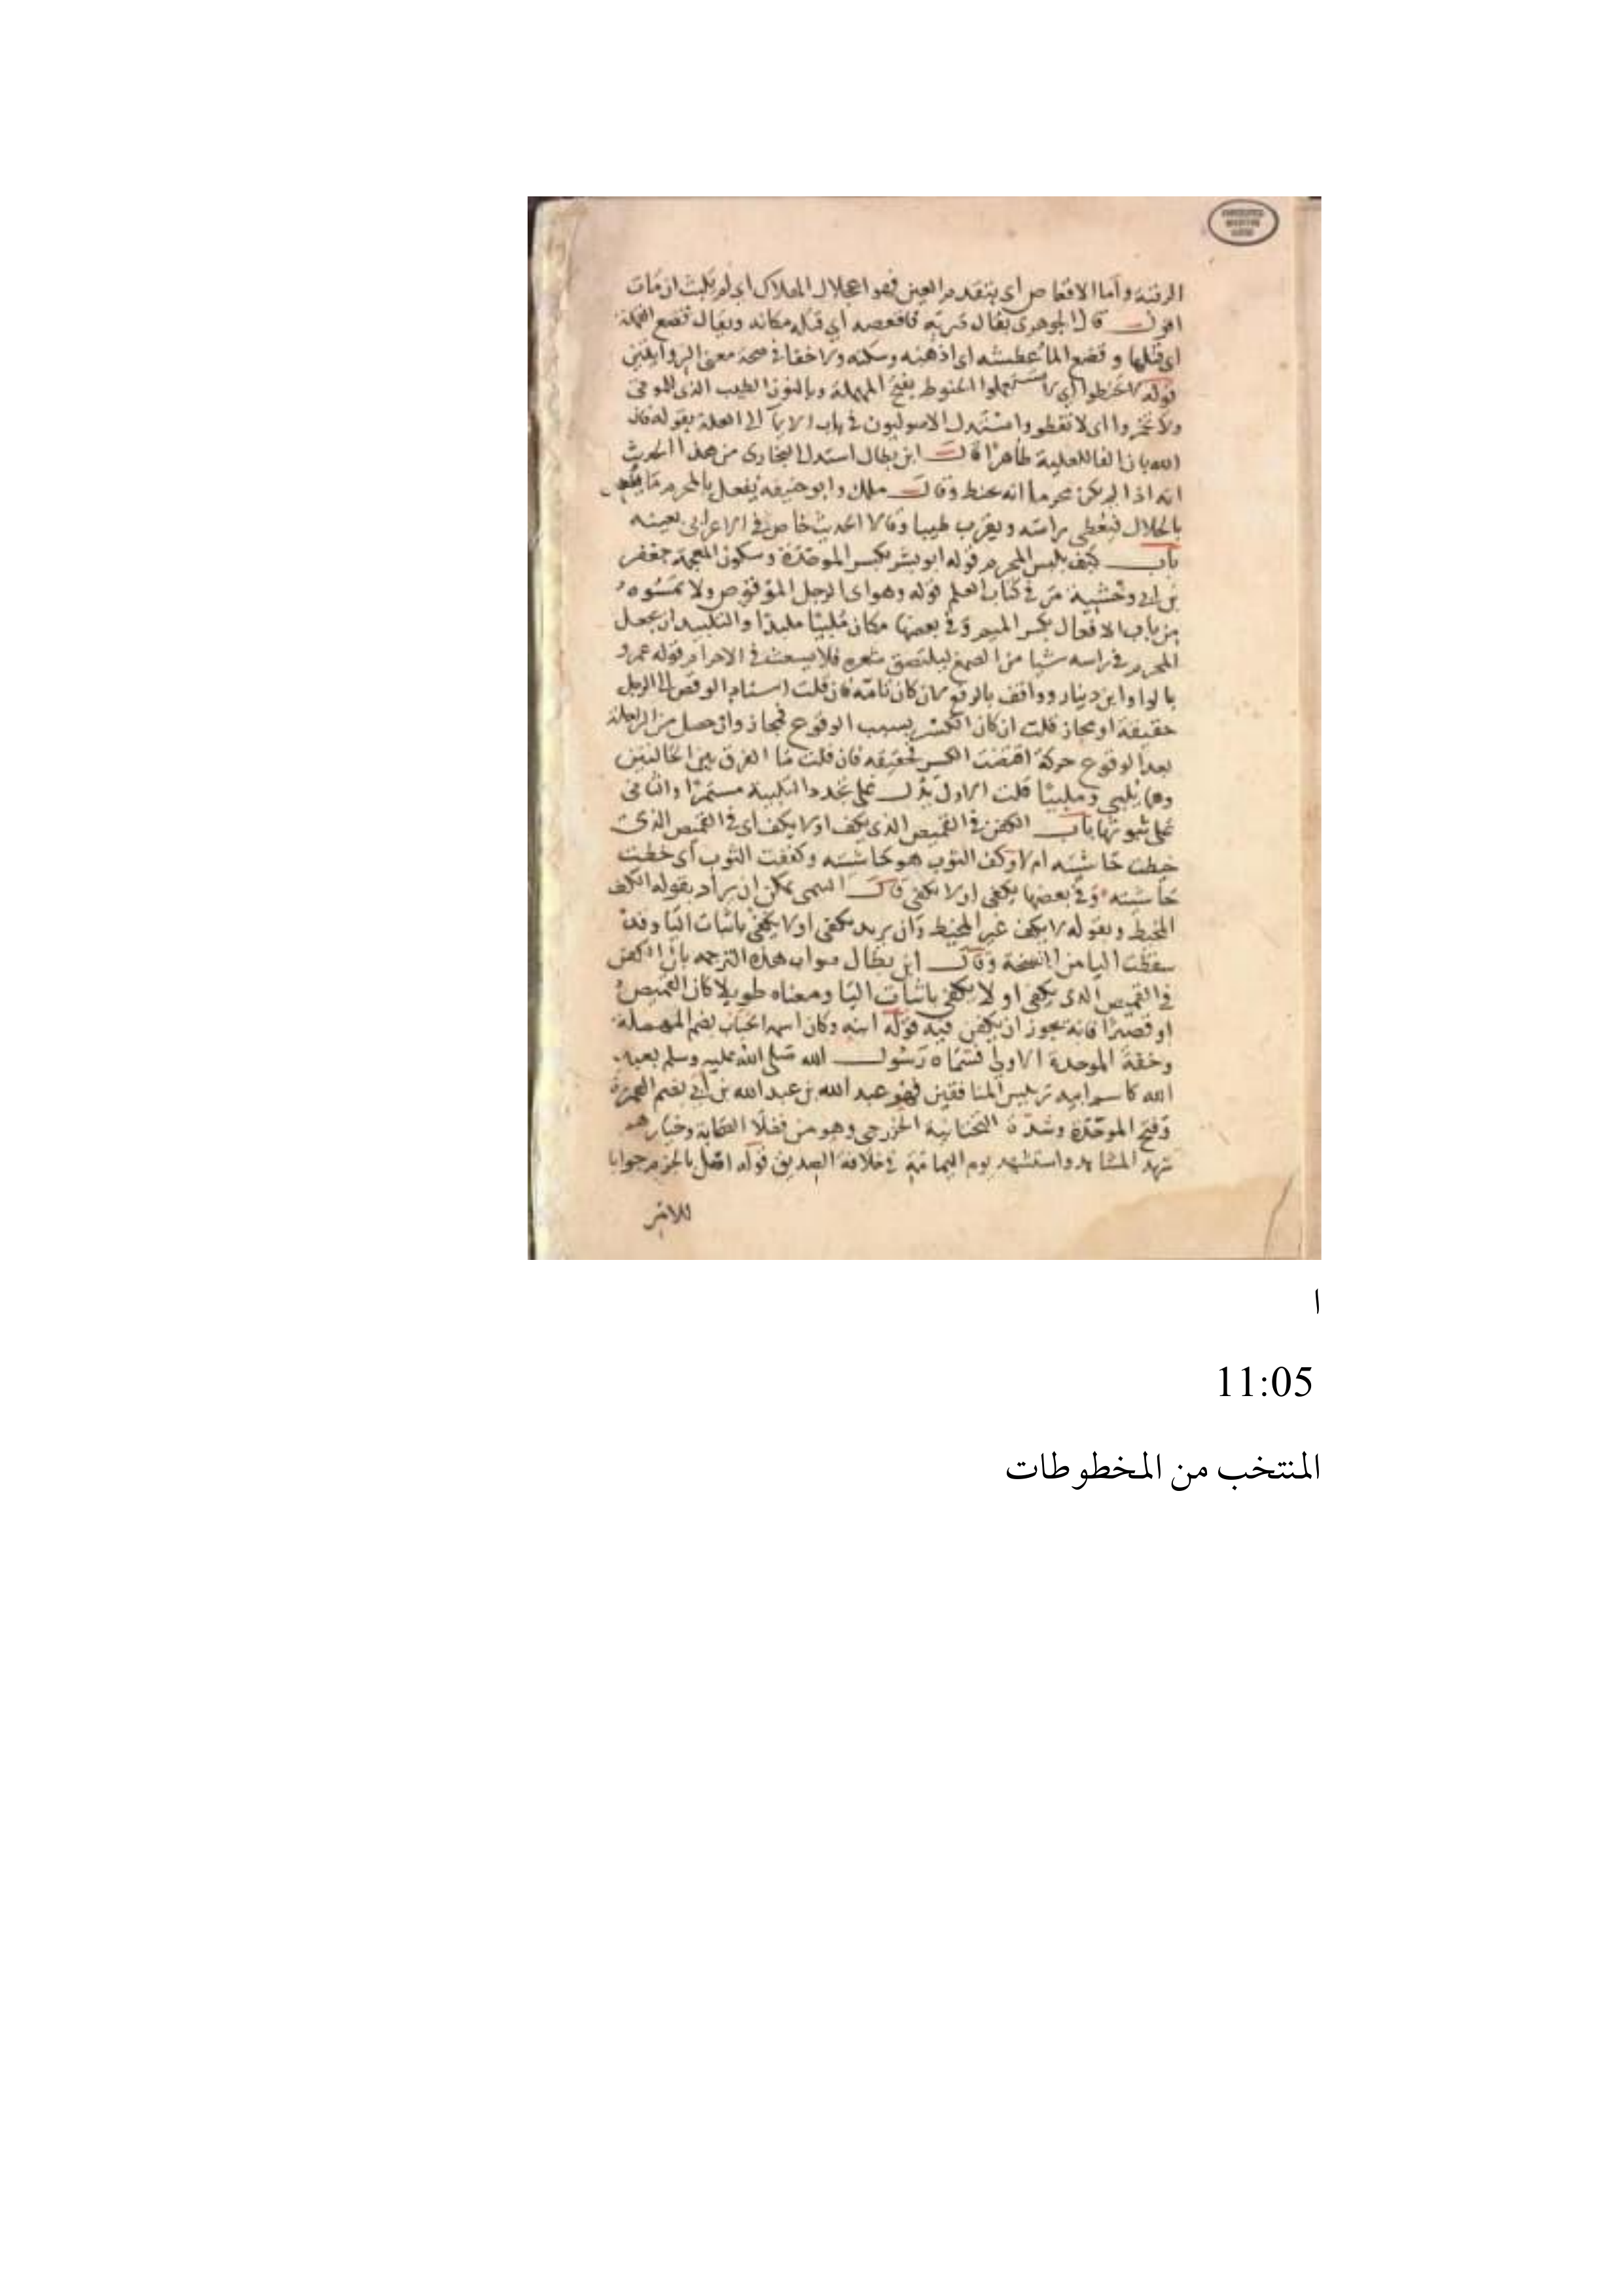 الرقبة واما الاقعاص اي بتقديم العين فهو اعجال الهلاك اي لم يلبث ان مات
اقول قال الجوهري يقال ضربه فاقعصه اي قتله مكانه ويقال قصع القملة
اي قتلها وقصع الماء عطشه اي اذهبه وسكنه ولا خفا في صحة معنى الروايتين
قوله لا تحنطوا اي لا تستعملوا الحنوط بفتح المهملة وبالنون الطيب الذي للموتى
ولا تخمروا اي لا تغطوا واستدل الاصوليون في باب الايما الى العلة بقوله فان
الله بان الفا للعلية ظاهرا قال ابن بطال استدل البخاري من هذا الحديث
انه اذا لم يكن محرما انه يحنط وقال ملك وابو حنيفة يفعل بالمحرم ما يفعل
بالحلال فيغطى راسه ويقرب طيبا وقالا الحديث خاص في الاعرابي بعينه
باب كيف يلبس المحرم قوله ابو بشر بكسر الموحدة وسكون المعجمة جعفر
بن ابي وحشية مر في كتاب العلم قوله وهو اي الرجل الموقوص ولا تمسوه
من باب الافعال بكسر الميم وفي بعضها مكان ملبيا ملبدا والتلبيد ان يجعل
المحرم في راسه شيا من الصمغ ليلتصق شعره فلا يشعث في الاحرام قوله عمرو
بالواو ابن دينار وواقف بالرفع لان كان تامة فان قلت اسناد الوقص الى الرجل
حقيقة او مجاز قلت ان كان الكسر بسبب الوقوع فمجاز وان حصل من الراحلة
بعد الوقوع حركة اقتضت الكسر فحقيقة فان قلت ما الفرق بين الحالتين
وهما يلبي وملبيا قلت الاول يدل على تجدد التلبية مستمرا والثاني
على ثبوتها باب الكفن في القميص الذي يكف او لا يكف اي في القميص الذي
خيطت حاشيته ام لا وكف الثوب هو حاشيته وكففت الثوب اي خطت
حاشيته وفي بعضها يكفي او لا يكفي قال التيمي يمكن ان يراد بقوله الكف
المخيط وبقوله لا يكف غير المخيط وان يريد يكفي او لا يكفي باثبات اليا وقد
سقطت اليا من النسخة وقال ابن بطال صواب هذه الترجمه باب الكفن
في القميص الذي يكفي او لا يكفي باثبات اليا ومعناه طويلا كان القميص
او قصيرا فانه يجوز ان يكفن فيه قوله ابنه وكان اسمه الحباب بضم المهملة
وخفة الموحدة الاولى فسماه رسول الله صلى الله عليه وسلم بعبد
الله كاسم ابيه رئيس المنافقين فهو عبد الله بن عبد الله بن ابي بضم الهمزة
وفتح الموحدة وشدة التحتانية الخزرجي وهو من فضلا الصحابة وخيارهم
شهد المشاهد واستشهد يوم اليمامة في خلافة الصديق قوله اصل بالجزم جوابا
للامر
ا
11:05
المنتخب من المخطوطات